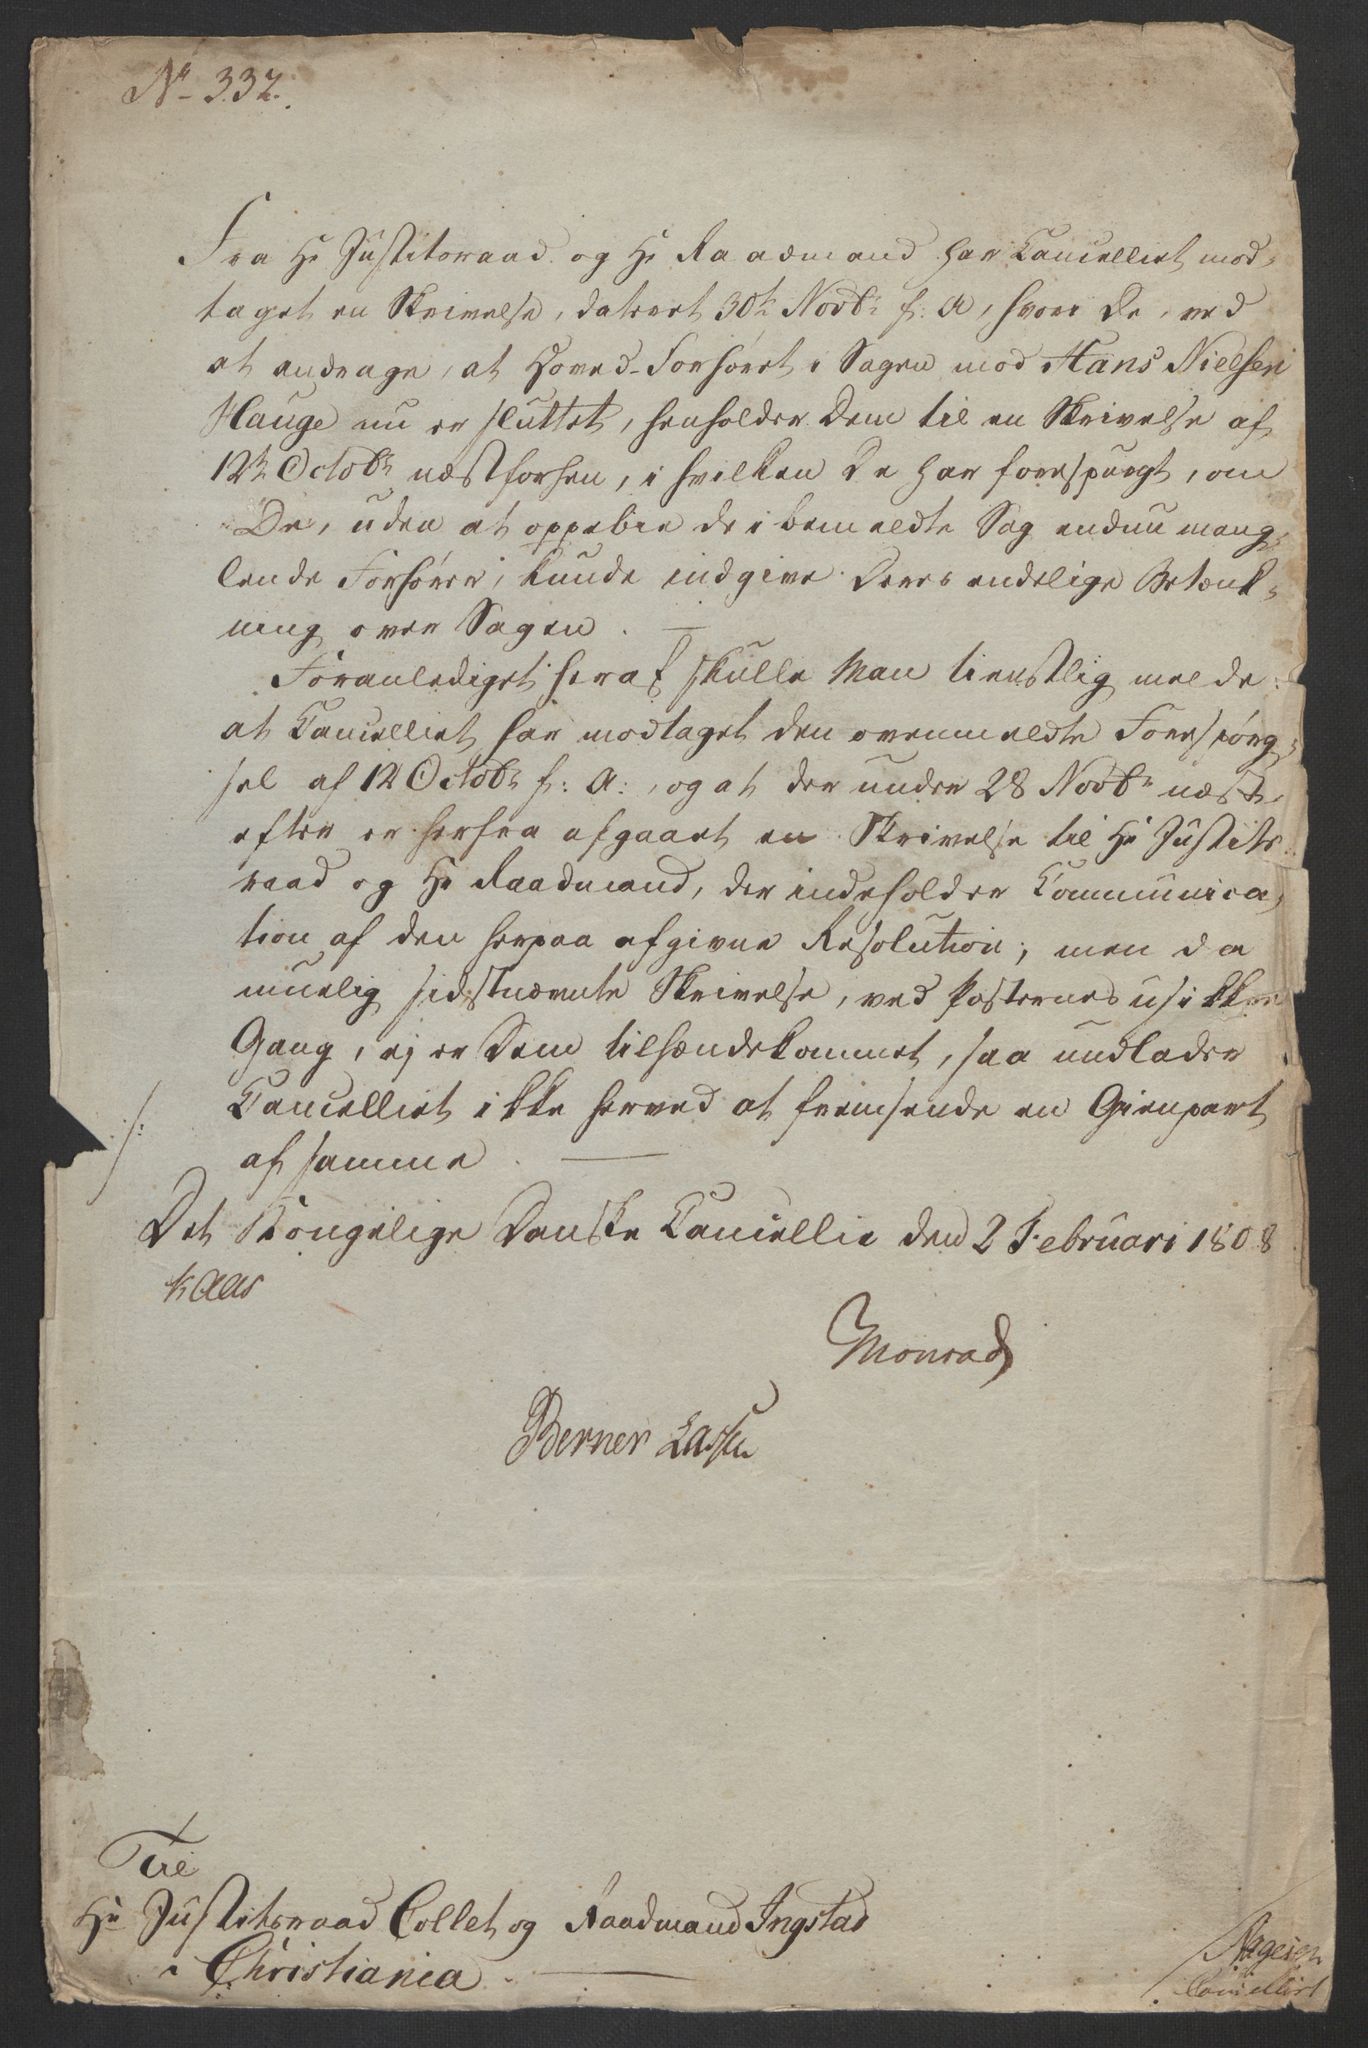 No 332.
Fra Hr Justitsraad og Hr Raadmand har Cancelliet mod-
taget en Skrivelse, dateret 30te Novbr f: A, hvori De, ved
at andrage, at Hoved-Forhøret i Sagen mod Hans Nielsen
Hauge nu er sluttet, henholder Dem til en Skrivelse af
12te Octobr næstforhen, i hvilken De har forespurgt, om
De, uden at oppebie de i bemeldte Sag endnu mang-
lende Forhører, kunde indgive Deres endelige Betænk-
ning over Sagen. —
Foranlediget heraf skulle Man tienstlig melde:
at Cancelliet har modtaget den ovenmeldte Forespørg-
sel af 12 Octobr f: A:, og at der under 28 Novbr næst-
efter er herfra afgaaet en Skrivelse til Hr Justits-
raad og Hr Raadmand, der indeholder Communica-
tion af den herpaa afgivne Resolution; men da
muelig sidstnævnte Skrivelse, ved Posternes usikkre
Gang, ej er Dem tilhændekommet, saa undlader
Cancelliet ikke herved at fremsende en Gienpart
af samme. —
Det Kongelige Danske Cancellie den 2 Februari 1808
Kaas
Monrad
Berner Lassen
Til
Hr Justitsraad Collet og Raadmand Ingstad
i Christiania. —
Cancellist